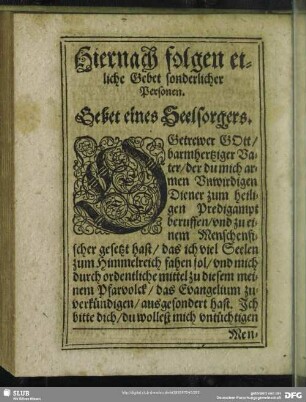 Hiernach folgen et-
liche Gebet sonderlicher
Personen.
Gebet eines Seelsorgers.
O Getrewer GOtt/
barmhertziger Va-
ter/ der du mich ar-
men Vnwirdigen
Diener zum heili-
gen Predigampt
beruffen/ vnd zu ei-
nem Menschenfi-
scher gesetzt hast/ das ich viel Seelen
zum Himmelreich fahen sol/ vnd mich
durch ordentliche mittel zu diesem mei-
nem Pfarvolck/ das Evangelium zu-
verkündigen/ ausgesondert hast. Ich
bitte dich/ du wollest mich vntüchtigen
Men-
SLUB
DFG